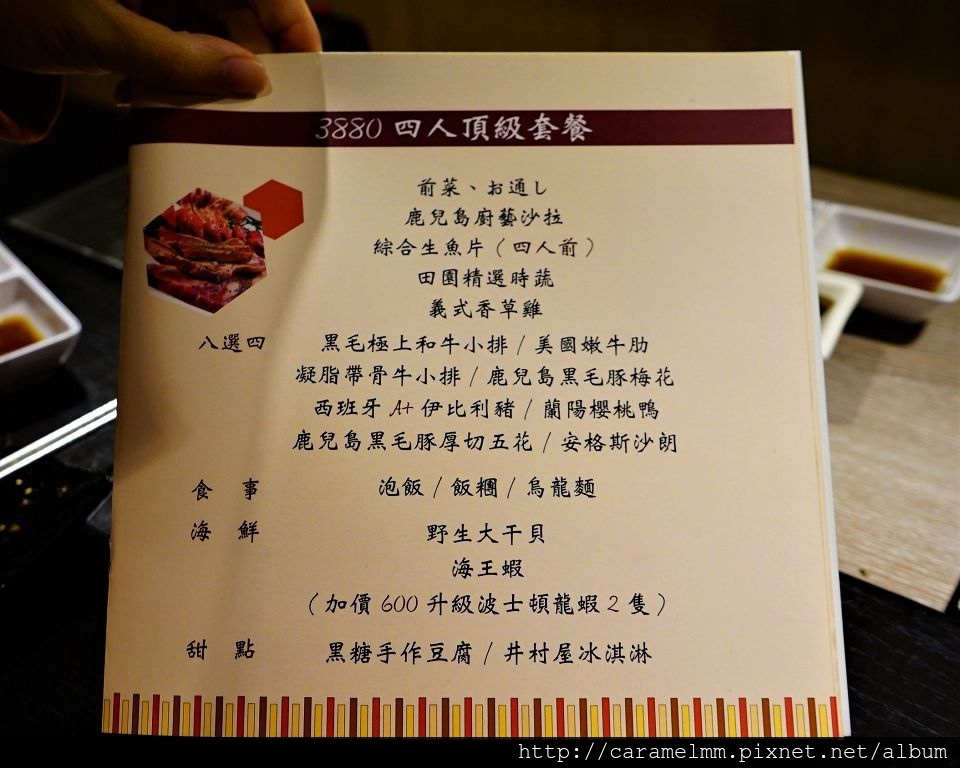 3880 四人頂級套餐
前菜、お通し
鹿兒島廚藝沙拉
綜合生魚片（四人前）
田園精選時蔬
義式香草雞
八選四 黑毛極上和牛小排 / 美國嫩牛肋
凝脂帶骨牛小排 / 鹿兒島黑毛豚梅花
西班牙 A+ 伊比利豬 / 蘭陽櫻桃鴨
鹿兒島黑毛豚厚切五花 / 安格斯沙朗
食 事 泡飯 / 飯糰 / 烏龍麵
海 鮮 野生大干貝
海王蝦
（加價 600 升級波士頓龍蝦 2 隻）
甜 點 黑糖手作豆腐 / 井村屋冰淇淋
http://caramelmm.pixnet.net/album